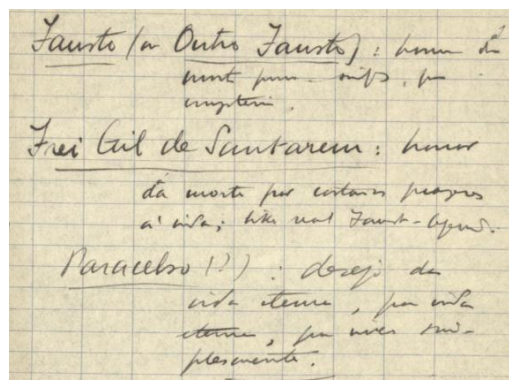 Fausto (ou Outro Fausto): horror da
morte por mysterio.
Frei Gil de Santarem: horror
da morte por cortar os prazeres
á vida; like real Faust-legend.
Paracelso (?): desejo da
vida eterna, por vida
eterna, por viver sim-
plesmente.